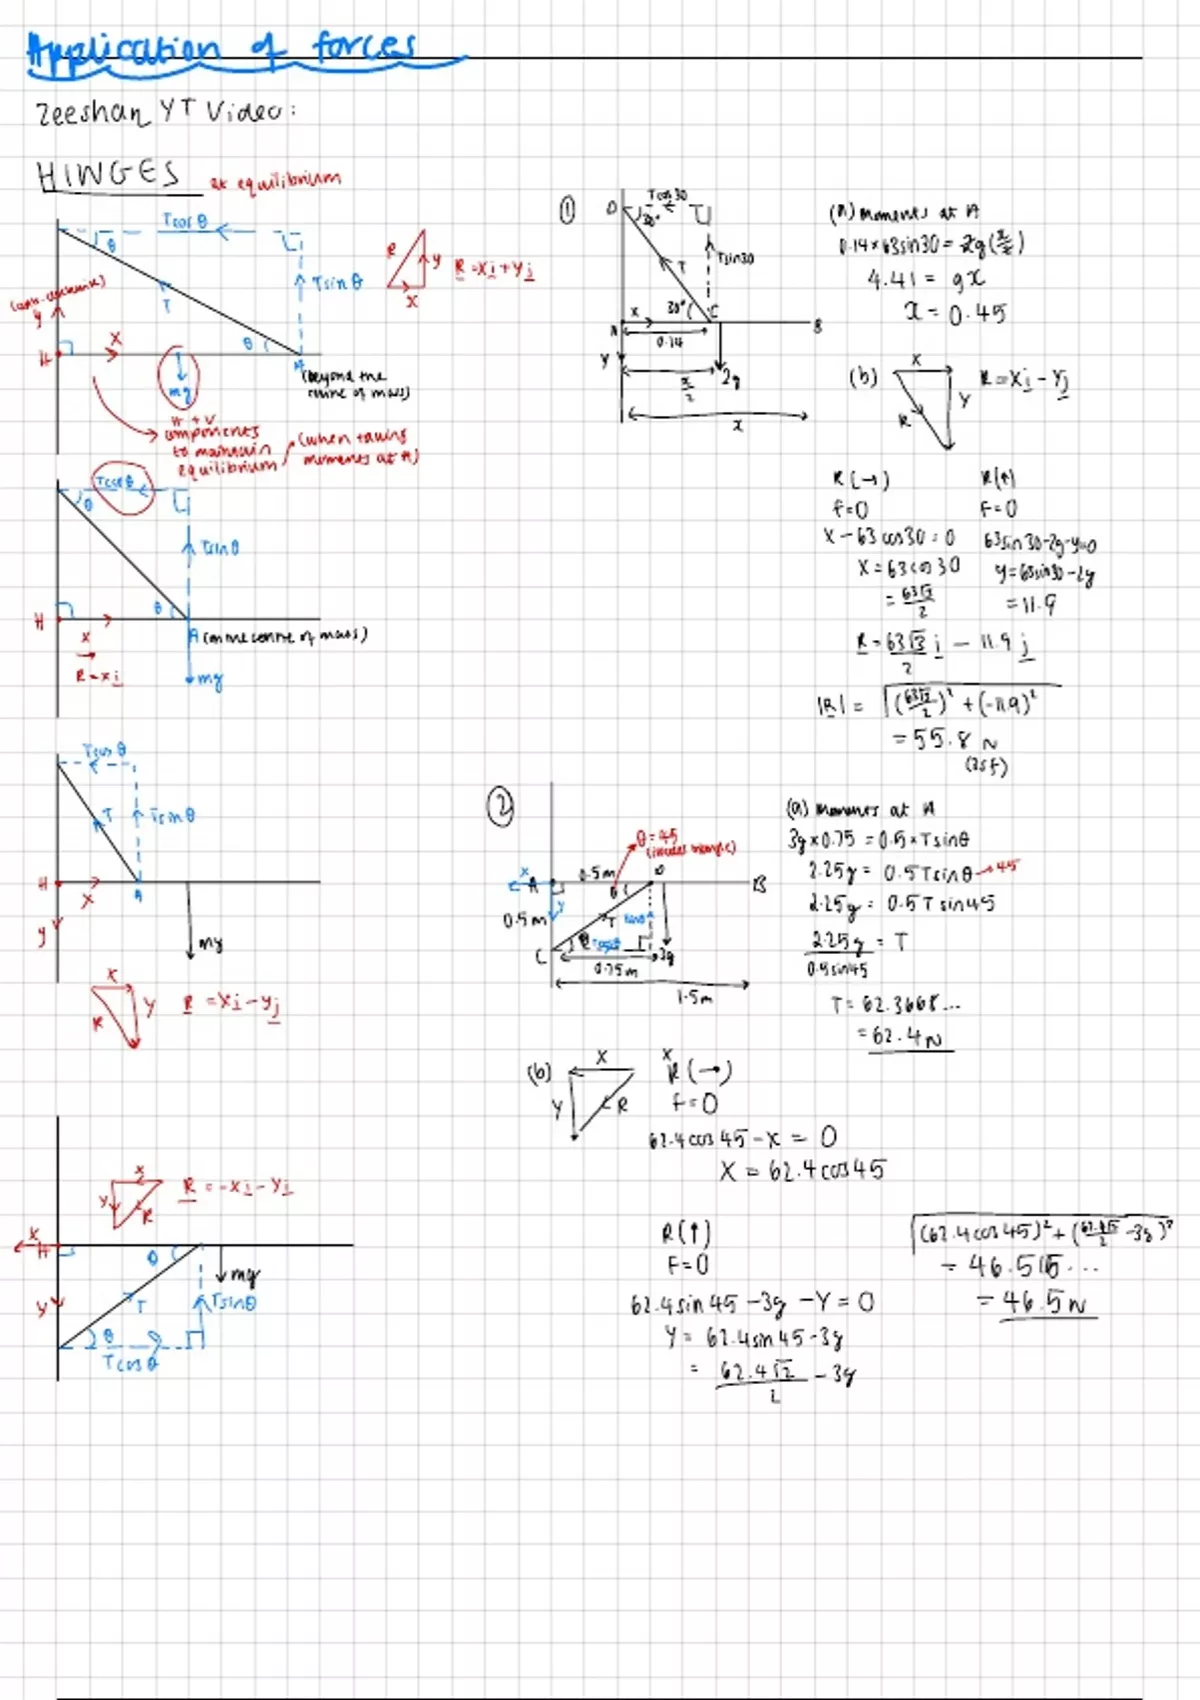 Application of forces
Zeeshan YT Video:
HINGES at equilibrium
Tcosθ
θ
T
Tsinθ
y
X
θ
H
A
mg
(beyond the
centre of mass)
R
y
x
R = Xi + Yj
H + V
components
to maintain
equilibrium
(when taking
moments at A)
Tcosθ
θ
Tsinθ
θ
H
X
R = Xi
A (on the centre of mass)
mg
Tcosθ
T
Tsinθ
H
X
A
y
mg
X
R
Y
R = Xi - Yj
X
Y
R
R = -Xi - Yj
X
H
θ
mg
Y
T
Tsinθ
θ
Tcosθ
①
D
Tcos30
30°
T
Tsin30
X
30°
C
A
B
0.14
Y
x/2
2g
x
(a) moments at A
0.14 × 63sin30 = 2g(x/2)
4.41 = gx
x = 0.45
(b)
X
Y
R
R = Xi - Yj
R(→)
F=0
X - 63cos30 = 0
X = 63cos30
= 63√3/2
R(↑)
F=0
63sin30-2g-y=0
y=63sin30-2g
= 11.9
R = 63√3/2 i - 11.9 j
|R| = √((63√3/2)² + (-11.9)²)
= 55.8 N
(3sf)
②
θ=45
(isosceles triangle)
X
A
0.5m
D
B
θ
0.5m
Y
T
C
θ
3g
0.75m
1.5m
(a) moments at A
3g×0.75 = 0.5×Tsinθ
2.25g = 0.5Tsinθ → 45
2.25g = 0.5Tsin45
2.25g/0.5sin45 = T
T = 62.3668...
= 62.4N
(b)
X
Y
R
x
R(→)
F=0
62.4cos45 - X = 0
X = 62.4cos45
R(↑)
F=0
62.4sin45 - 3g - Y = 0
Y = 62.4sin45 - 3g
= 62.4√2/2 - 3g
√((62.4cos45)² + (62.4√2/2 - 3g)²)
= 46.515...
= 46.5N